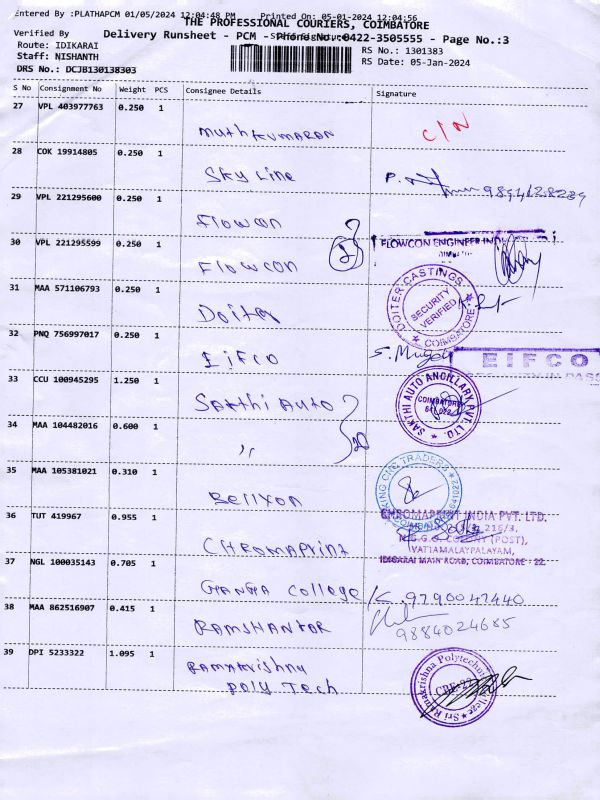 Entered By :PLATHAPCM 01/05/2024 12:04:48 PM Printed On: 05-01-2024 12:04:56
THE PROFESSIONAL COURIERS, COIMBATORE
Verified By
Delivery Runsheet - PCM - Phone No.:0422-3505555 - Page No.:3
Route: IDIKARAI
Staff: NISHANTH
DRS No.: DCJB130138303
RS No.: 1301383
RS Date: 05-Jan-2024
S No Consignment No Weight PCS Consignee Details Signature
27 VPL 403977763 0.250 1
MUthKUMARAN
C/N
28 COK 19914805 0.250 1
Sky Line
P.
29 VPL 221295600 0.250 1
Flowcon
30 VPL 221295599 0.250 1
FLOWCON ENGINEER
Flowcon
2
31 MAA 571106793 0.250 1
Doiter
DOITER CASTINGS
SECURITY
VERIFIED
COIMBATORE
32 PNQ 756997017 0.250 1
EifCO
S.
EIFCO
33 CCU 100945295 1.250 1
Sakthi Auto
SAKTHI AUTO ANCILLARY PVT. LTD
COIMBATORE
34 MAA 104482016 0.600 1
"
35 MAA 105381021 0.310 1
Bellxon
KING CNC TRADERS
36 TUT 419967 0.955 1
CHROMAPRINT INDIA PVT. LTD.
CHROMAPRINT
VATTAMALAYPALAYAM,
IDIGARAI MAIN ROAD, COIMBATORE - 22.
37 NGL 100035143 0.705 1
GANGA College
K. 9790047440
38 MAA 862516907 0.415 1
RAMSHANKAR
9884024685
39 DPI 5233322 1.095 1
RAMAKrishna
Poly Tech
Sri Ramakrishna Polytechnic College
CBE-22